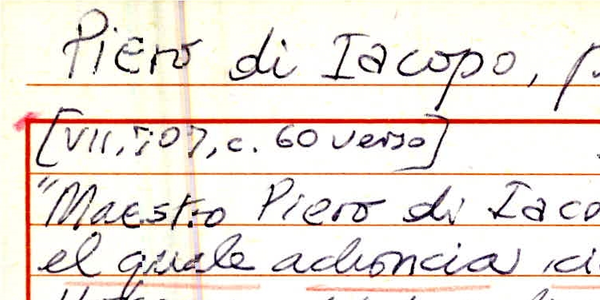 Piero di Iacopo, p
[VII, 707, c. 60 verso]
"Maestro Piero di Iaco
el quale achoncia ci